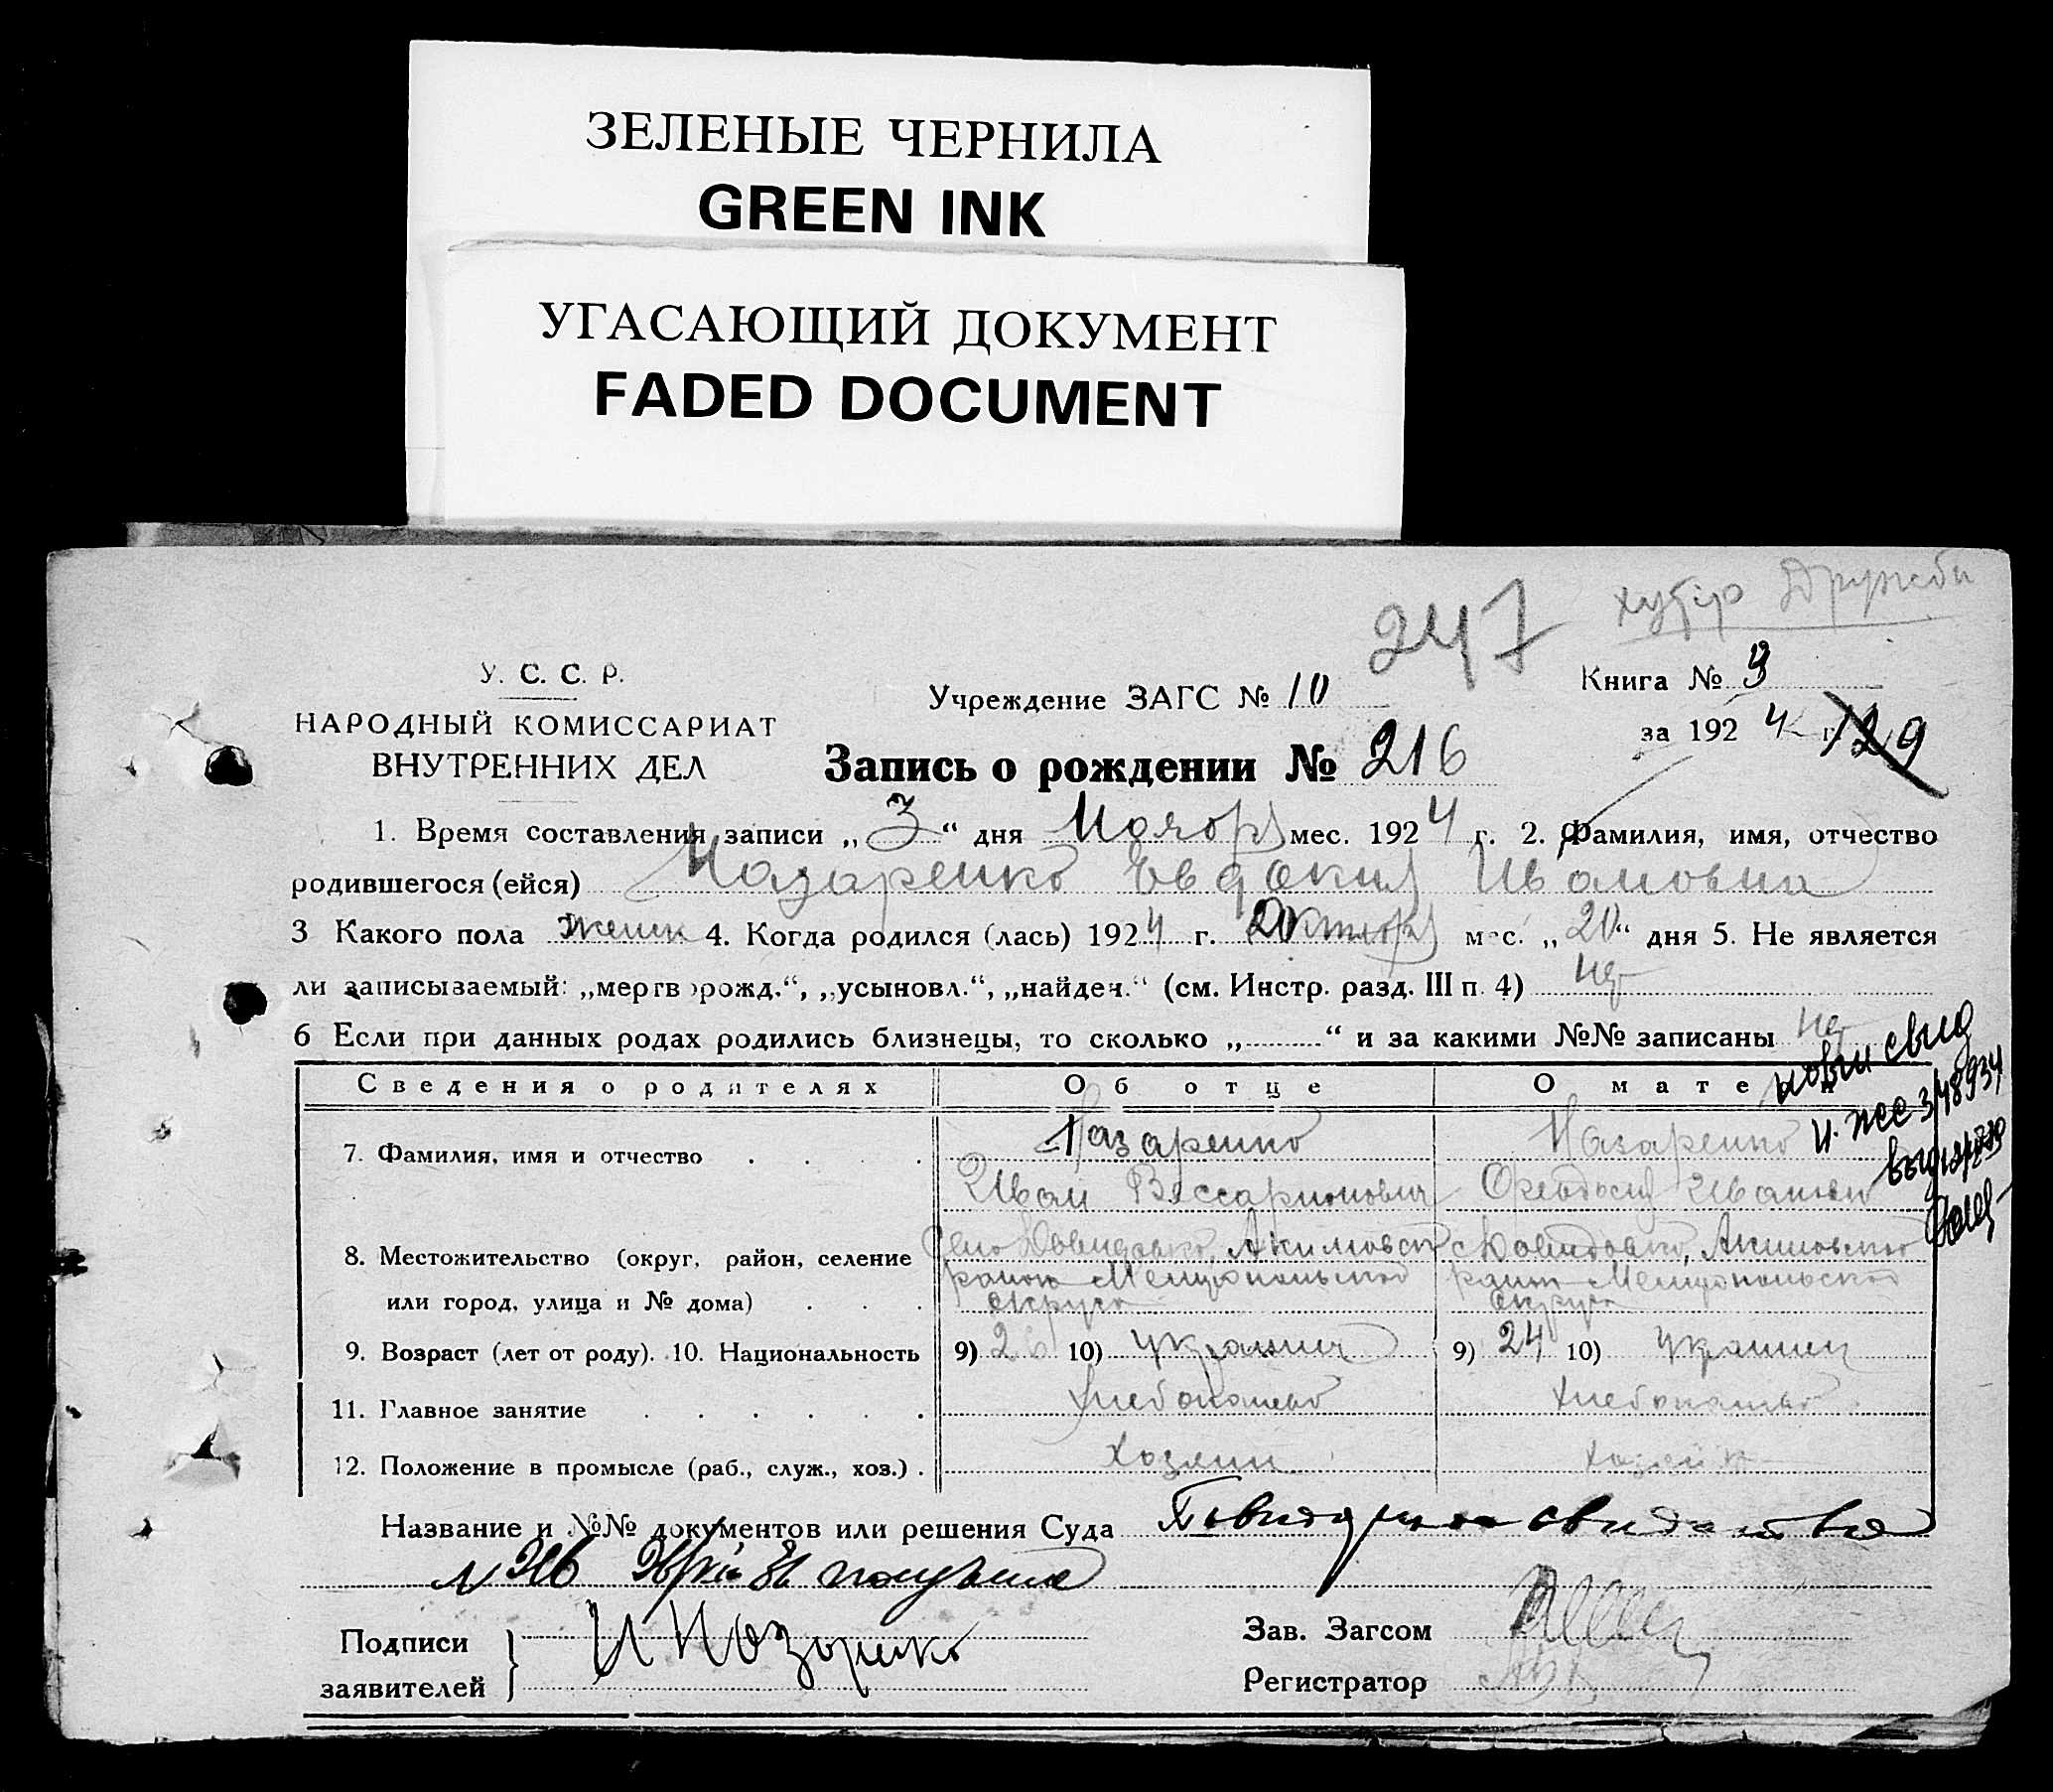 ЗЕЛЕНЫЕ ЧЕРНИЛА
GREEN INK
УГАСАЮЩИЙ ДОКУМЕНТ
FADED DOCUMENT
247 хутір Дружби
У. С. С. Р.
НАРОДНЫЙ КОМИССАРИАТ
ВНУТРЕННИХ ДЕЛ
Учреждение ЗАГС № 10
Книга № 3
за 1924 г. 129
Запись о рождении № 216
1. Время составления записи „3“ дня Ноября мес. 1924 г. 2. Фамилия, имя, отчество
родившегося (ейся) Назаренко Евдокия Ивановна
3 Какого пола женск 4. Когда родился (лась) 1924 г. Октября мес. „20“ дня 5. Не является
ли записываемый: „мертворожд.“, „усыновл.“, „найден.“ (см. Инстр. разд. III п. 4) нет
6 Если при данных родах родились близнецы, то сколько „ “ и за какими №№ записаны нет
Сведения о родителях Об отце О матери
7. Фамилия, имя и отчество Назаренко Назаренко
Иван Виссарионович Ивановн
8. Местожительство (округ, район, селение Село Акимовск Акимовского
или город, улица и № дома) район Мелитопольской район Мелитопольской
округа округа
9. Возраст (лет от роду). 10. Национальность 9) 26 10) украинц 9) 24 10) украинц
11. Главное занятие хлебопашество хлебопашество
12. Положение в промысле (раб., служ., хоз.) хозяин хозяйк
Название и №№ документов или решения Суда свидетельство
Подписи
заявителей
И Назаренко
Зав. Загсом
Регистратор